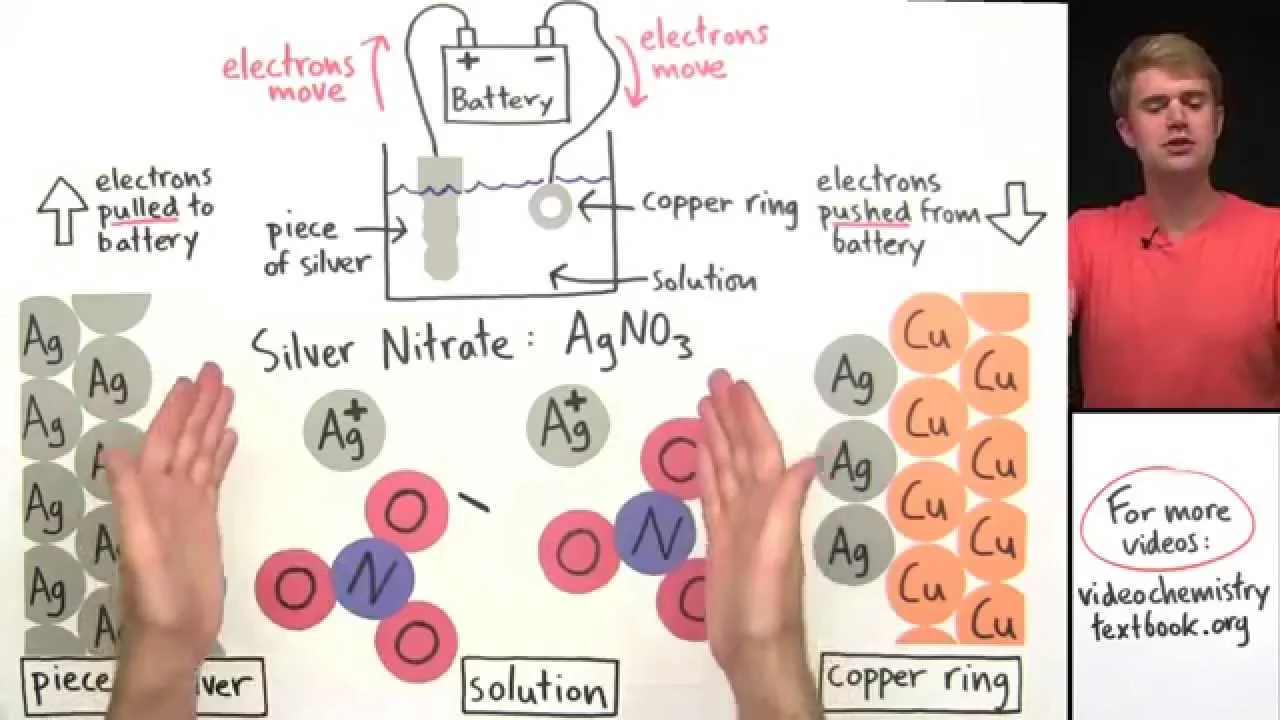 electrons
move
+ -
Battery
electrons
move
electrons
pulled to
battery
piece
of silver
copper ring
solution
electrons
pushed from
battery
Silver Nitrate: AgNO3
Ag
Ag
Ag
Ag
Ag
Ag+
Ag+
O
N
O
O
-
O
N
Ag
Ag
Ag
Cu
Cu
Cu
Cu
Cu
Cu
Cu
Cu
solution
copper ring
For more
videos:
videochemistry
textbook.org